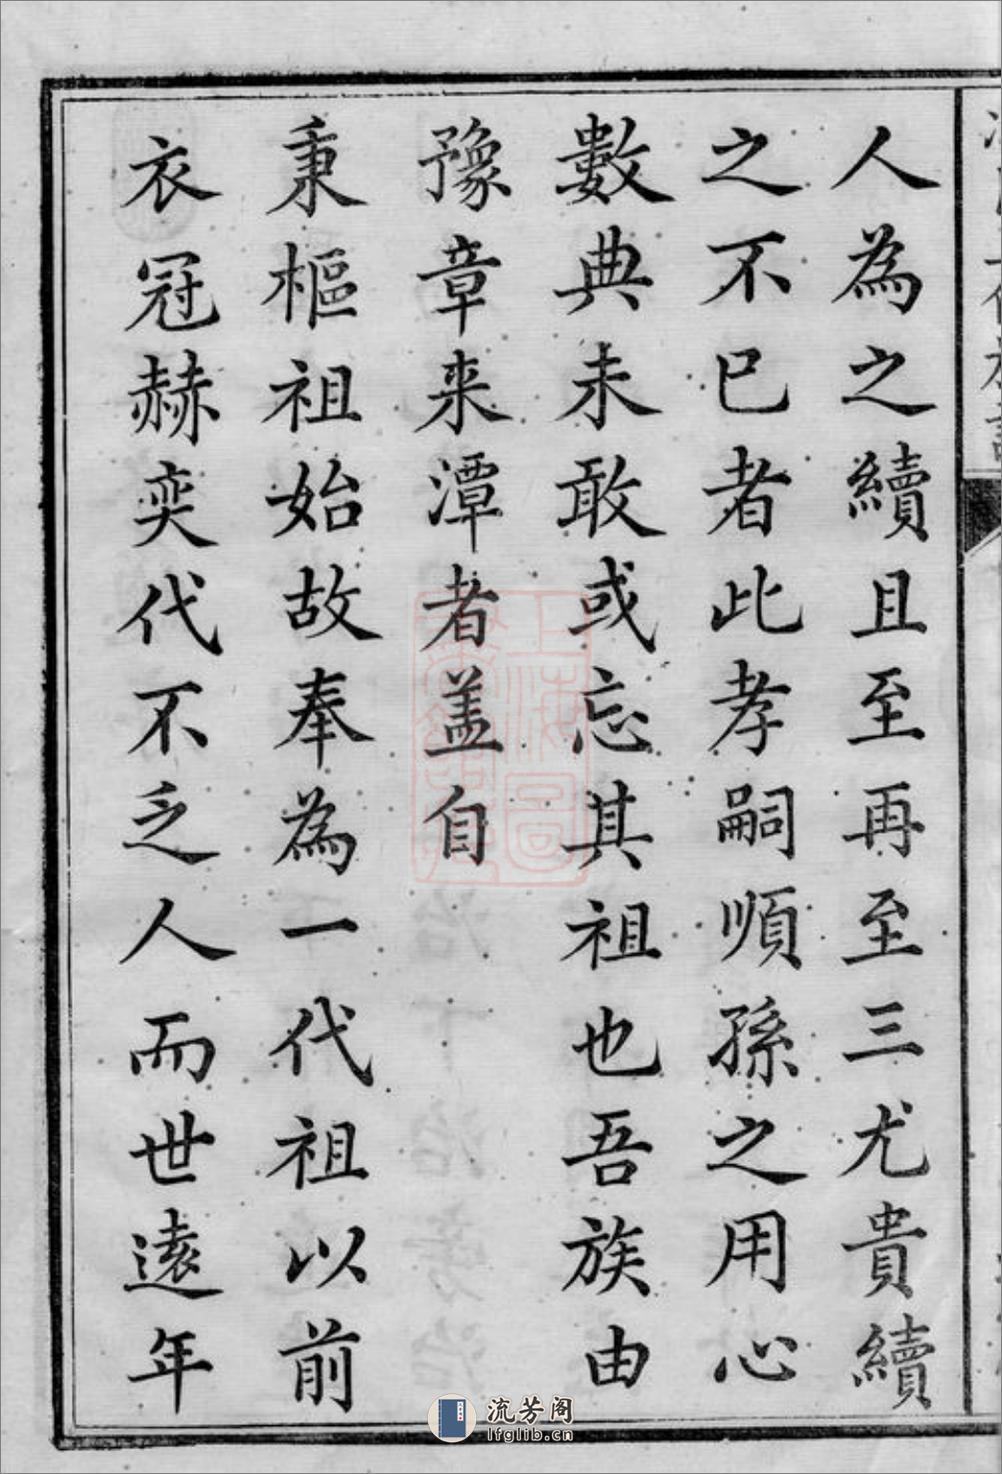 人為之續且至再至三尤貴續
之不已者此孝嗣順孫之用心
數典未敢或忘其祖也吾族由
豫章来潭者盖自
秉樞祖始故奉為一代祖以前
衣冠赫奕代不乏人而世遠年
流芳阁
lfglib.cn